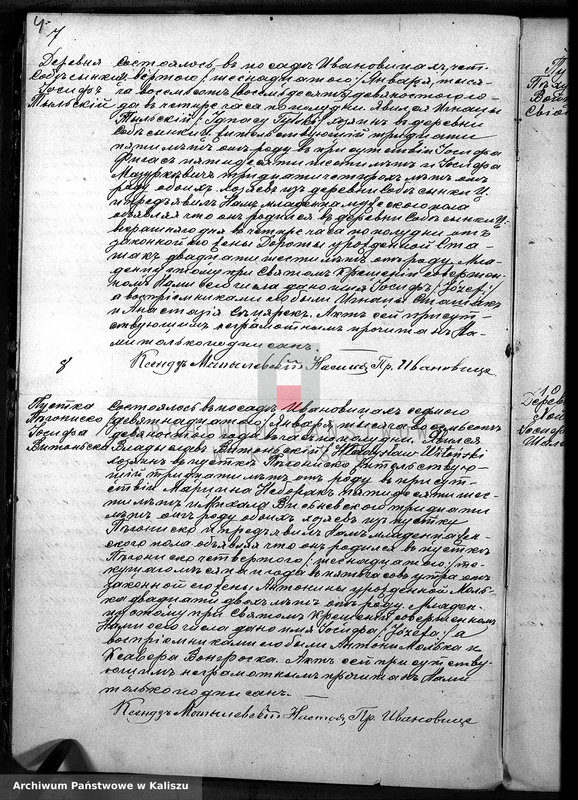 4.
7
Деревня
Собъсынки
Іосифъ
Тыльскій
Состоялось въ посадѣ Ивановицахъ, чет-
вертаго / шеснадцатаго / Января, тыся-
ча восемьсотъ восемьдесятъ девяностаго го-
да въ четыре часа по полудни. Явился Игнацы
Тыльскій / Ignacy / хозяинъ въ деревни
жительствующій тридцати
пяти лѣтъ отъ роду въ присутствіи Іосифа
пятидесяти шести лѣтъ и Іосифа
тридцати четырехъ лѣтъ отъ
роду обоихъ хозяевъ изъ деревни Собъсынки И
и предъявилъ Намъ младенца мужескаго пола
объявляя что онъ родился въ деревни Собъсынки И
вчерашняго дня въ четыре часа по полудни отъ
законной его жены Дороты урожденной Ста-
шакъ двадцати шести лѣтъ отъ роду. Мла-
денцу этому при Святомъ Крещеніи совершон-
номъ Нами сего числа дано имя Іосифъ / Józef /
а воспріемниками его были Игнацы Сташакъ
и Анастазія. Актъ сей присут-
ствующимъ неграмотнымъ прочитанъ На-
ми только подписанъ.
Ксендзъ Настоя. Пр. Ивановице
8
Пустка
Пѣгониско
Іосифа
Витоньска
Состоялось въ посадѣ Ивановицахъ седмого
/ девятнадцатаго / Января тысяча восемьсотъ
девяностаго года въ часъ по полудни. Явился
Владыславъ Витоньскій / Władysław Witoński /
хозяинъ въ пустки Пѣгониско жительствую-
щій тридцати лѣтъ отъ роду въ присут-
ствіи Марцина пятидесяти шес-
ти лѣтъ и Михала Висьневскаго тридцати
лѣтъ отъ роду обоихъ хозяевъ изъ пустку
Пѣгониско и предъявилъ Намъ младенца жен-
скаго пола объявляя что онъ родился въ пустки
Пѣгониско четвертаго / шеснадцатаго / те-
кущаго мѣсяца и года въ пять часовъ утра отъ
законной его жены Антонины урожденной Моль-
ка двадцати двохъ лѣтъ отъ роду. Младен-
цу этому при Святомъ Крещеніи совершенномъ
Нами сего числа дано имя Іосифа / Józefa / а
воспріемниками его были Антони Молька и
Ксавера. Актъ сей присутству-
ющимъ неграмотнымъ прочитанъ Нами
только подписанъ.
Ксендзъ Настоя. Пр. Ивановице
10
Archiwum Państwowe w Kaliszu